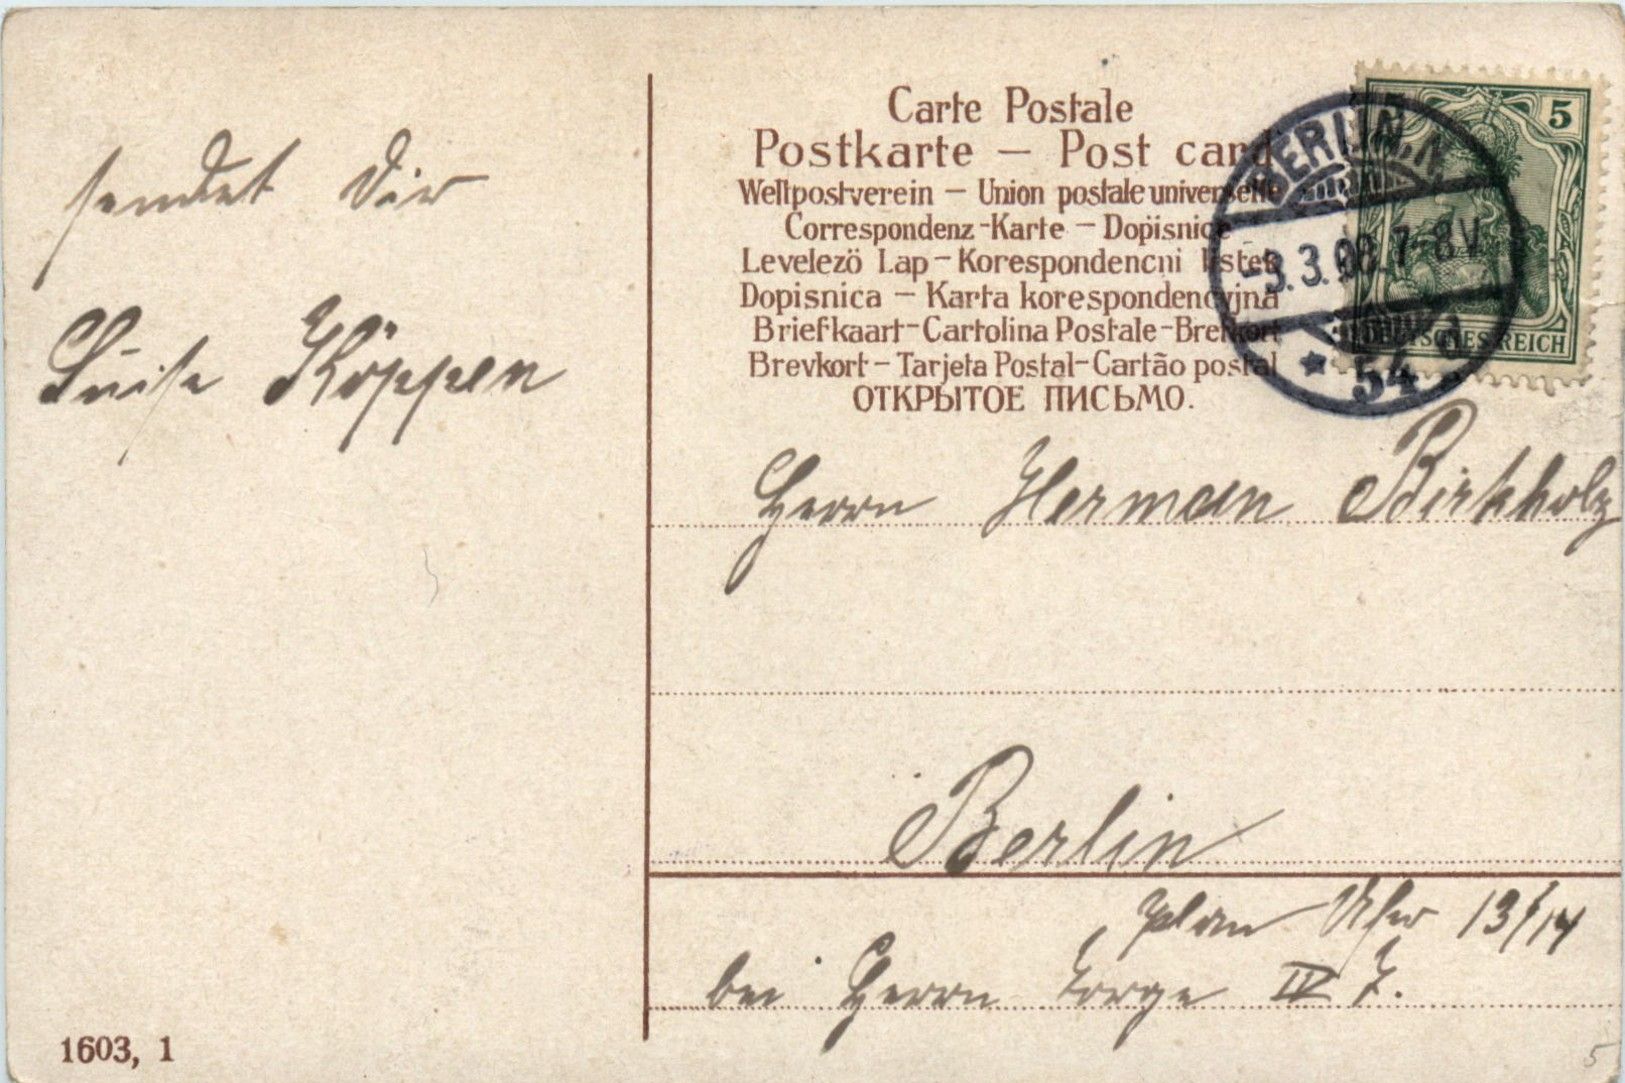 sendet Dir
Luise Köppen
1603, 1
Carte Postale
Postkarte – Post card
Weltpostverein – Union postale universelle
Correspondenz-Karte – Dopisnice
Levelezö Lap – Korespondencni listek
Dopisnica – Karta korespondencyjna
Briefkaart – Cartolina Postale – Brefkort
Brevkort – Tarjeta Postal – Cartão postal
ОТКРЫТОЕ ПИСЬМО.
5
DEUTSCHES REICH
BERLIN, N.
3.3.08. 7-8V
* 54 d
Herrn Herman Birkholz
Berlin
plan Ufer 13/14
bei Herrn IV
5